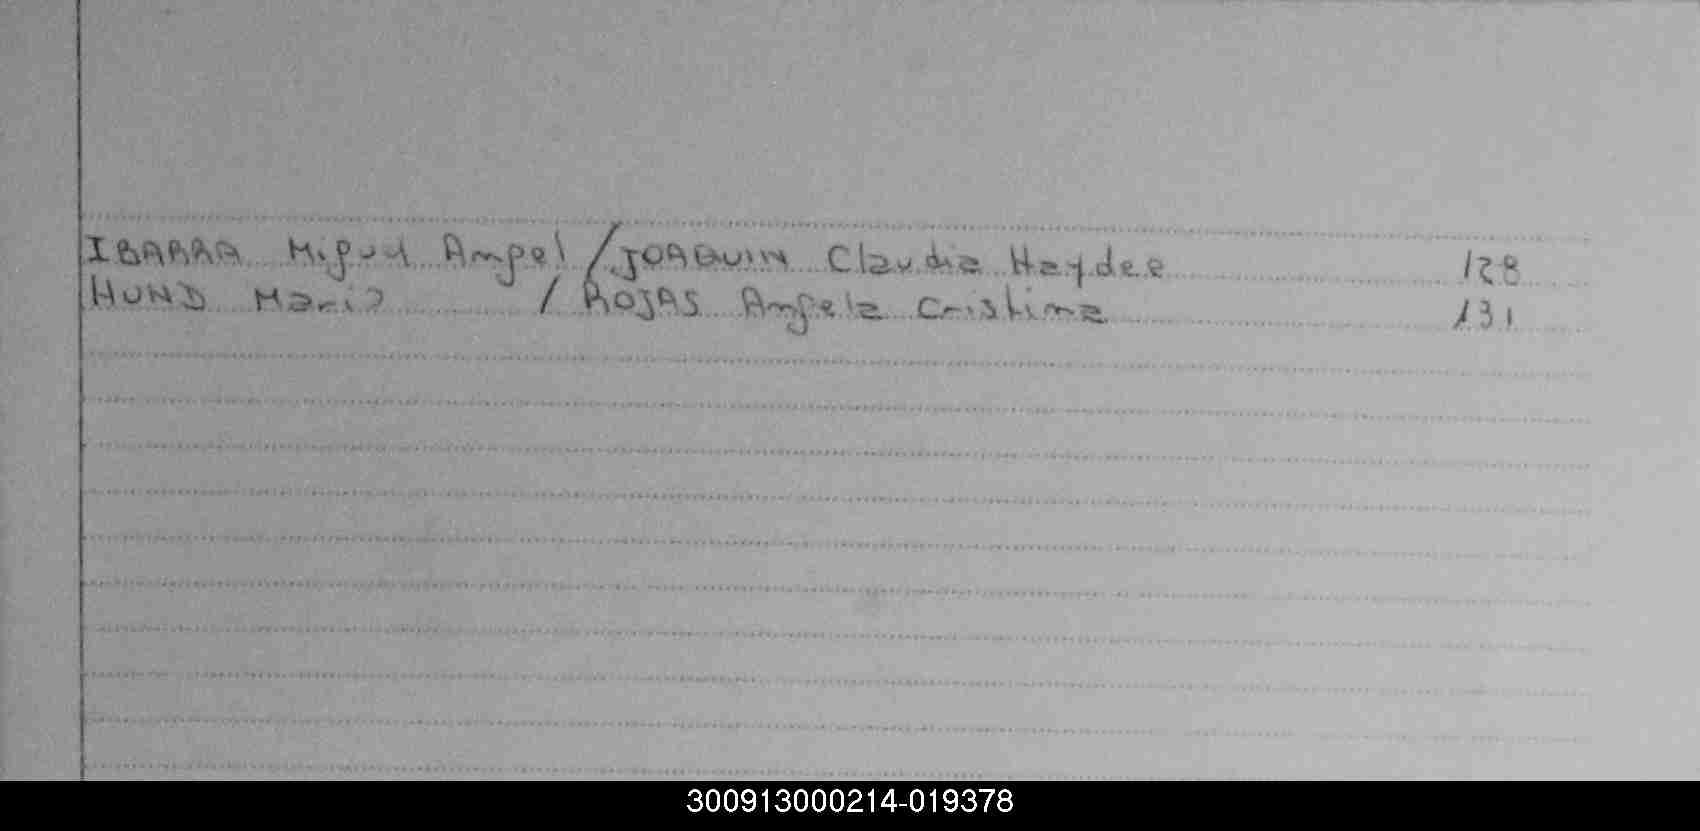 IBARRA Miguel Angel / JOAQUIN Claudia Haydee 128
HUND Mario / ROJAS Angela Cristina 131
300913000214-019378